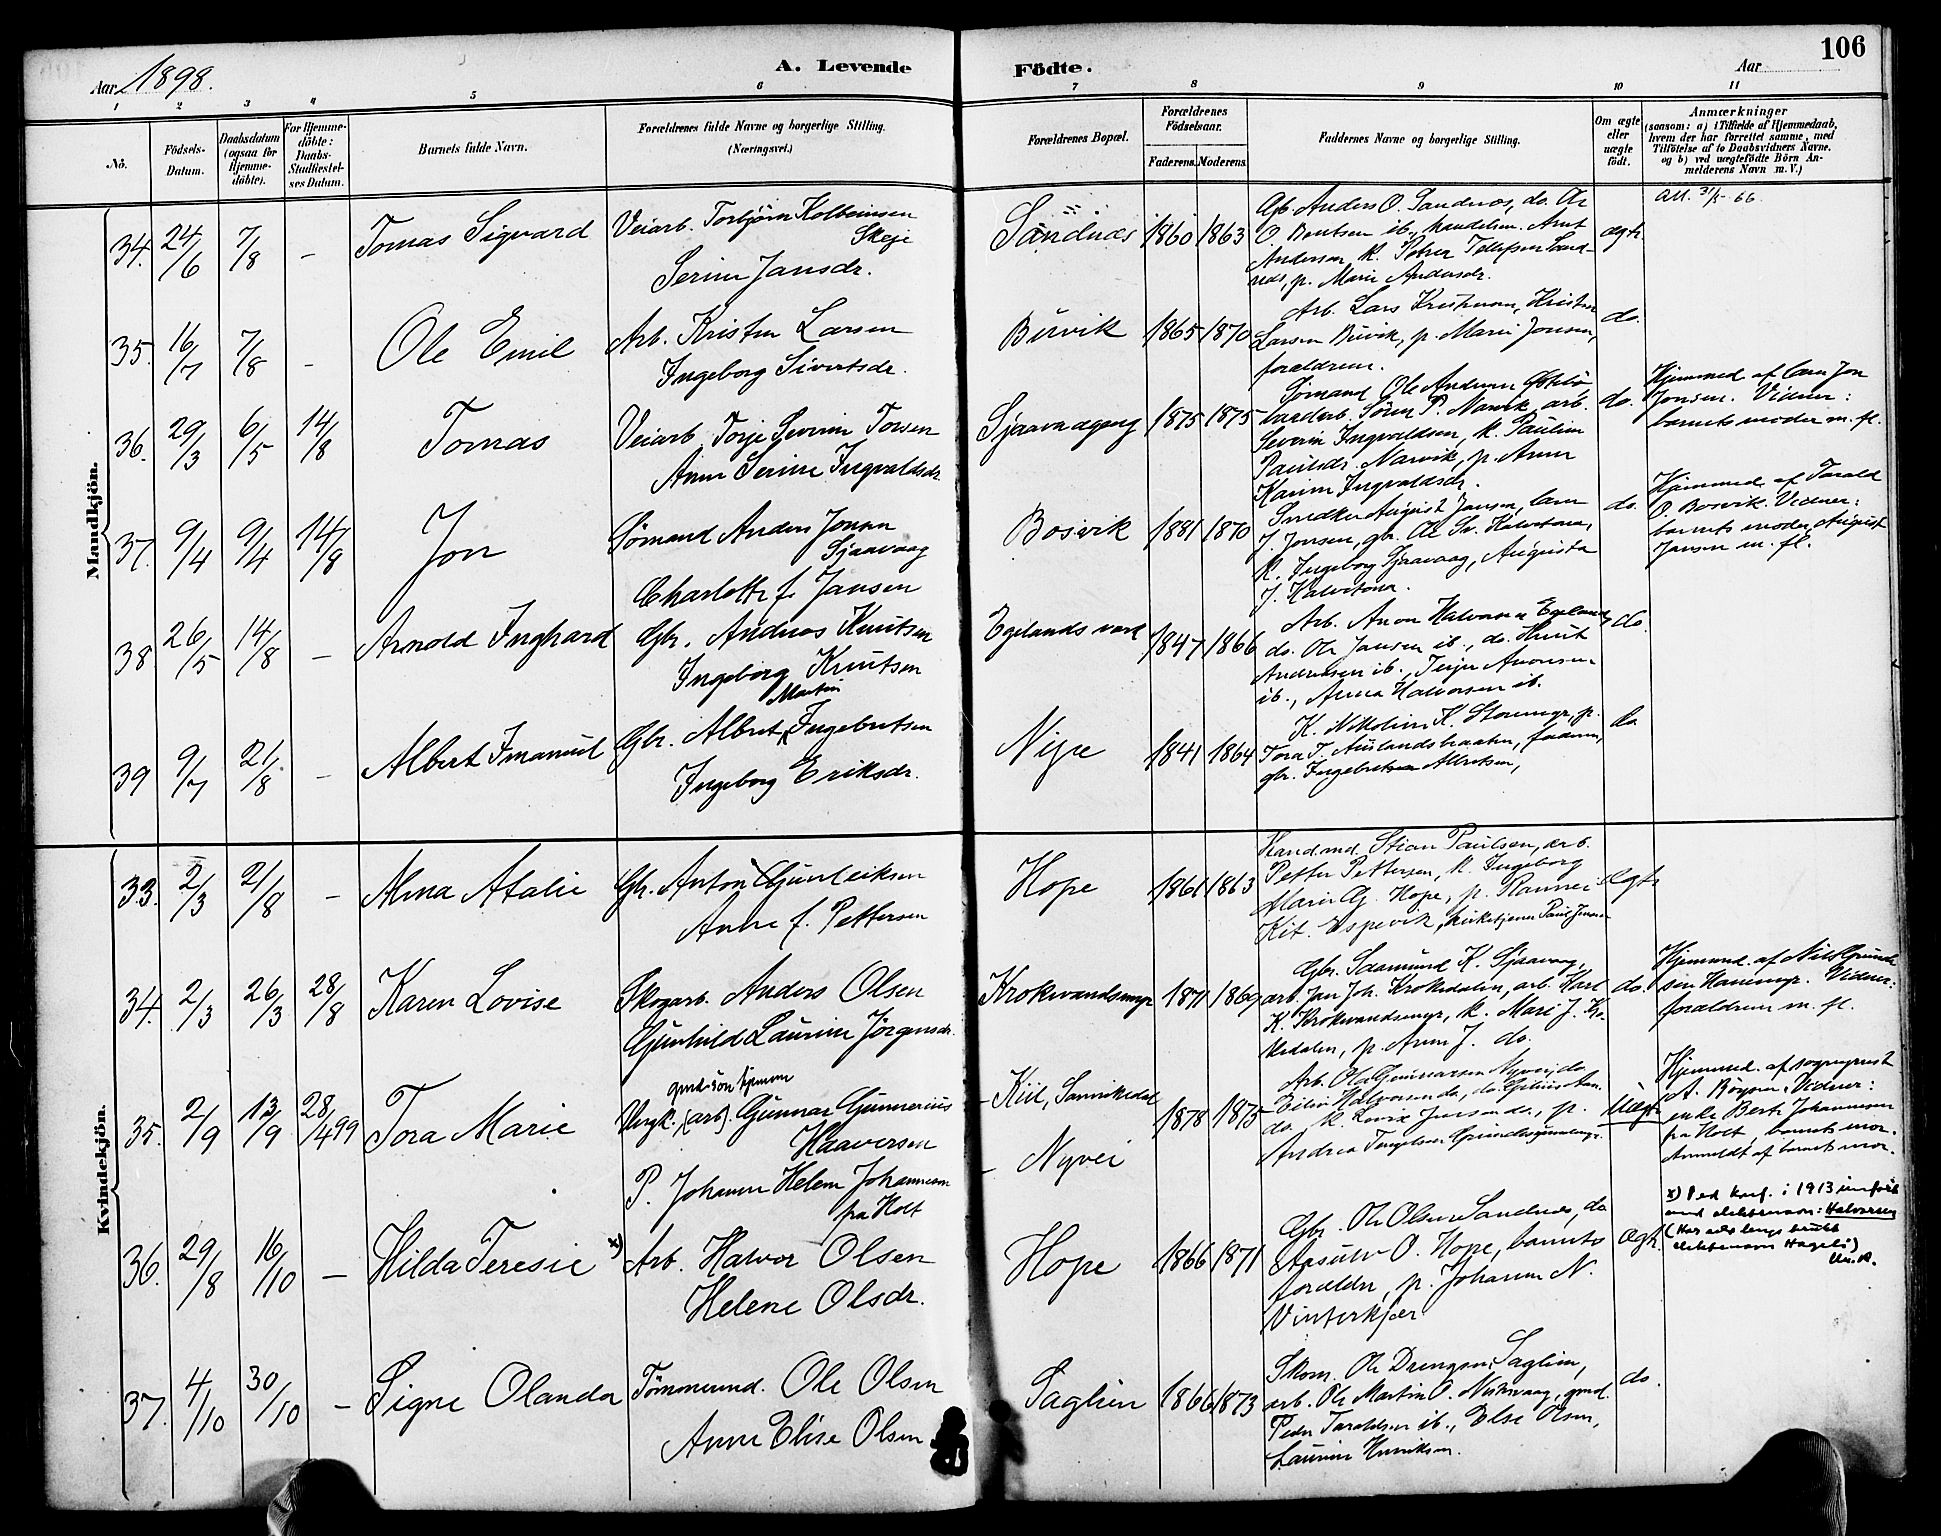 106
Aar 1898.
A. Levende
Födte.
Aar
1 2 3 4 5 6 7 8 9 10 11
No.
Födsels-
Datum.
Daabsdatum
(ogsaa for
Hjemme-
döbte).
For Hjemme-
döbte:
Daabs-
Stadfæstel-
ses Datum.
Barnets fulde Navn.
Forældrenes fulde Navne og borgerlige Stilling.
(Næringsvei.)
Forældrenes Bopæl.
Forældrenes
Födselsaar.
Faderens. Moderens.
Faddernes Navne og borgerlige Stilling.
Om ægte
eller
uægte
födt.
Anmærkninger
(saasom: a) i Tilfælde af Hjemmedaab,
hvem der har forrettet samme, med
Tilföielse af to Daabsvidners Navne,
og b) ved uægtefödte Börn An-
melderens Navn m. V.)
Mandkjön.
34. 24/6 7/8 - Tomas Sigvard
Veiarb. Torbjørn Kolbeinsen
Skeje
Serine Jansdr.
Sandnæs 1860 1863
Gb. Anders O. Sandnæs, do.
O. Bentsen ib., handelsm. Arnt
Anderson, k. Petrea Tellefsen Sand-
næs, p. Marie Andersdr.
ægte.
Att. 31/5 - 66.
35. 16/7 7/8 - Ole Emil
Arb. Kristen Larsen
Ingeborg Sivertsdr.
Buvik 1865 1870
Arb. Lars Kristensen, Kristen
Larsen Buvik, p. Marie Jonsen,
forældrene.
do.
36. 29/3 6/5 14/8 Tomas
Veiarb. Torje Severin Torsen
Anne Serine Ingvaldsdr.
Sjaavaageng 1875 1875
Sømand Ole Andersen
Søren P. Narvik, arb.
Severin Ingvaldsen, k. Pauline
Paulsdr. Narvik, p. Anne
Karine Ingvaldsdr.
do.
Hjemmed. af Lars Jon
Jonsen. Vidner:
barnets moder m. fl.
37. 9/4 9/4 14/8 Jon
Sømand Anders Jonsen
Sjaavaag
Charlotte f. Jansen
Bosvik 1881 1870
Snedker August Jansen,
J. Jonsen, gb. Ole Sv. Kalvetona,
k. Ingeborg Sjaavaag, Augusta
J. Kalvetona.
do.
Hjemmed. af Tarald
O. Bosvik. Vidner:
barnets moder, August
Jansen m. fl.
38 26/5 14/8 - Arnold Inghard
Gbr. Andreas Knutsen
Ingeborg Knutsen
Egelands verk 1847 1866
Arb. Aron Halvorsen Egeland,
do. Ole Jansen ib., do. Knut
Andreassen ib., Terjer Aronsen
ib., Anna Halvorsen ib.
do.
39 9/7 21/8 - Albert Imanuel
Gbr. Albret Martin Ingebretsen
Ingeborg Eriksdr.
Nipe 1841 1864
K. Nikoline K. Stormyr, p.
Tora T. Auslandsbraaten, faderen,
gbr. Ingebretsen Albretsen,
do
Kvindekjön.
33. 2/3 21/8 - Alma Atalie
Gbr. Anton Gunleiksen
Anne f. Pettersen
Hope 1861 1863
Handmd. Stian Paulsen, arb.
Petter Pettersen, k. Ingeborg
Marie Hope, p. Rannei
Kit. Espevik, kirketjener Paul Jensen
ægte
34. 2/3 26/3 28/8 Karen Lovise
Skogarb. Anders Olsen
Gunhild Laurine Jørgensdr.
Krokvandsmyr 1871 1869
Gbr. Saamund K. Sjaavaag,
arb. Jan Joh. Krokedalen, arb. Karl
K. Krokvandsmyr, k. Mari J. Kro-
kedalen, p. Anne J. do.
do.
Hjemmed. af Nils
Vidner:
forældrene m. fl.
35. 2/9 13/9 28/4 99 Tora Marie
Ungk. (arb). Gunnar Gunnerius
Haaversen
P. Johanne Helene Johannesen
fra Holt
- Kiil, Sannikedal
- Nyvei
1878 1875
Arb. Ole Gunnarsen Nyvei, do
Halvorsen do,
do. k. Lovise Jensen do., p.
Andrea
Uægte
Hjemmed. af sogneprest
A. Røgson. Vidner:
enke Berte Johannesen
fra Holt, barnets mor.
Anmeldt af barnets mor.
36. 29/8 16/10 - Hilda Teresie x)
Arb. Halvor Olsen
Helene Olsdr.
Hope 1866 1871
Gbr. Ole Olsen Sandnæs, do
O. Hope, barnets
forældre, p. Johanne N.
Vinterkjær
Ægte.
x) Ved konf. i 1913 innført
med slektsnavn: Halvorsen
(Har selv lenge brukt
slektsnavn Hageli)
37. 4/10 30/10 - Signe Olanda
Tømmermd. Ole Olsen
Anne Elise Olsen
Saglien 1866 1873
Skom. Ole Drengsen, Saglien,
arb. Ole Martin O. gmd.
Peder Taraldsen ib., Else Olsen,
Laurine Henriksen.
do.